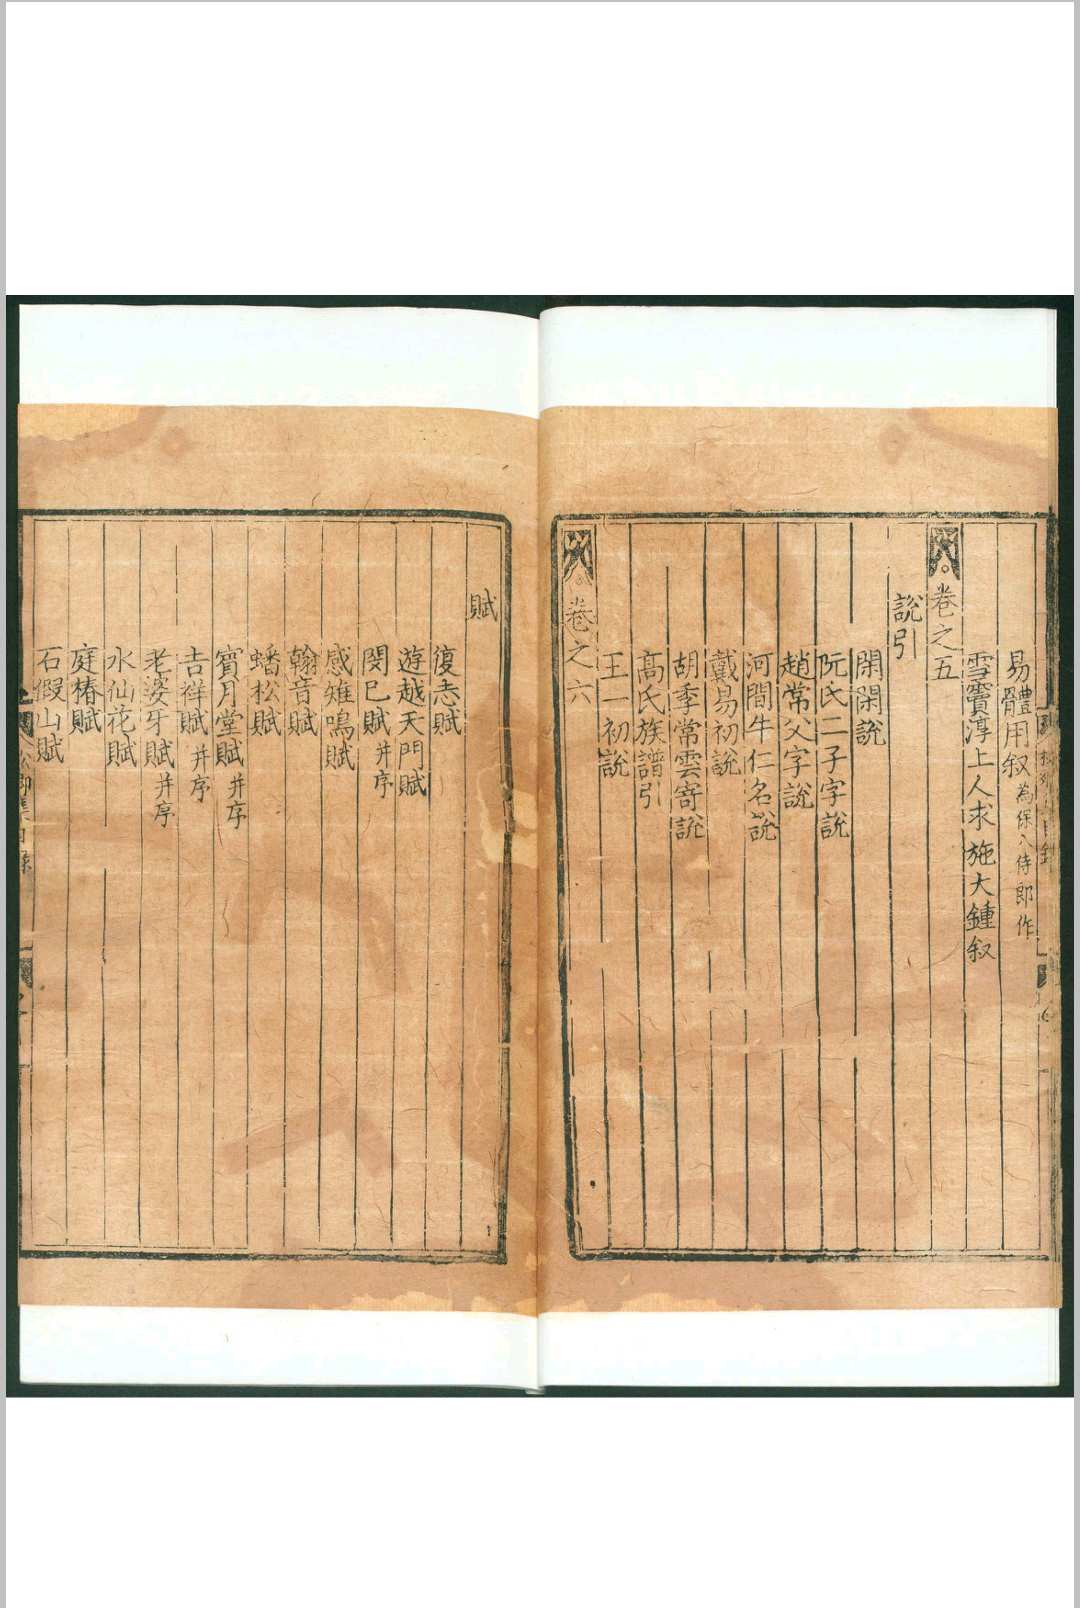 易體用叙為保八侍郎作
雪竇淳上人求施大鍾叙
卷之五
說引
閑閑說
阮氏二子字說
趙常父字說
河間牛仁名說
戴易初說
胡季常雲寄說
高氏族譜引
王一初說
卷之六
賦
復志賦
遊越天門賦
閔巳賦并序
感雉鳴賦
翰音賦
蟠松賦
寳月堂賦并序
吉祥賦并序
老婆牙賦并序
水仙花賦
庭椿賦
石假山賦